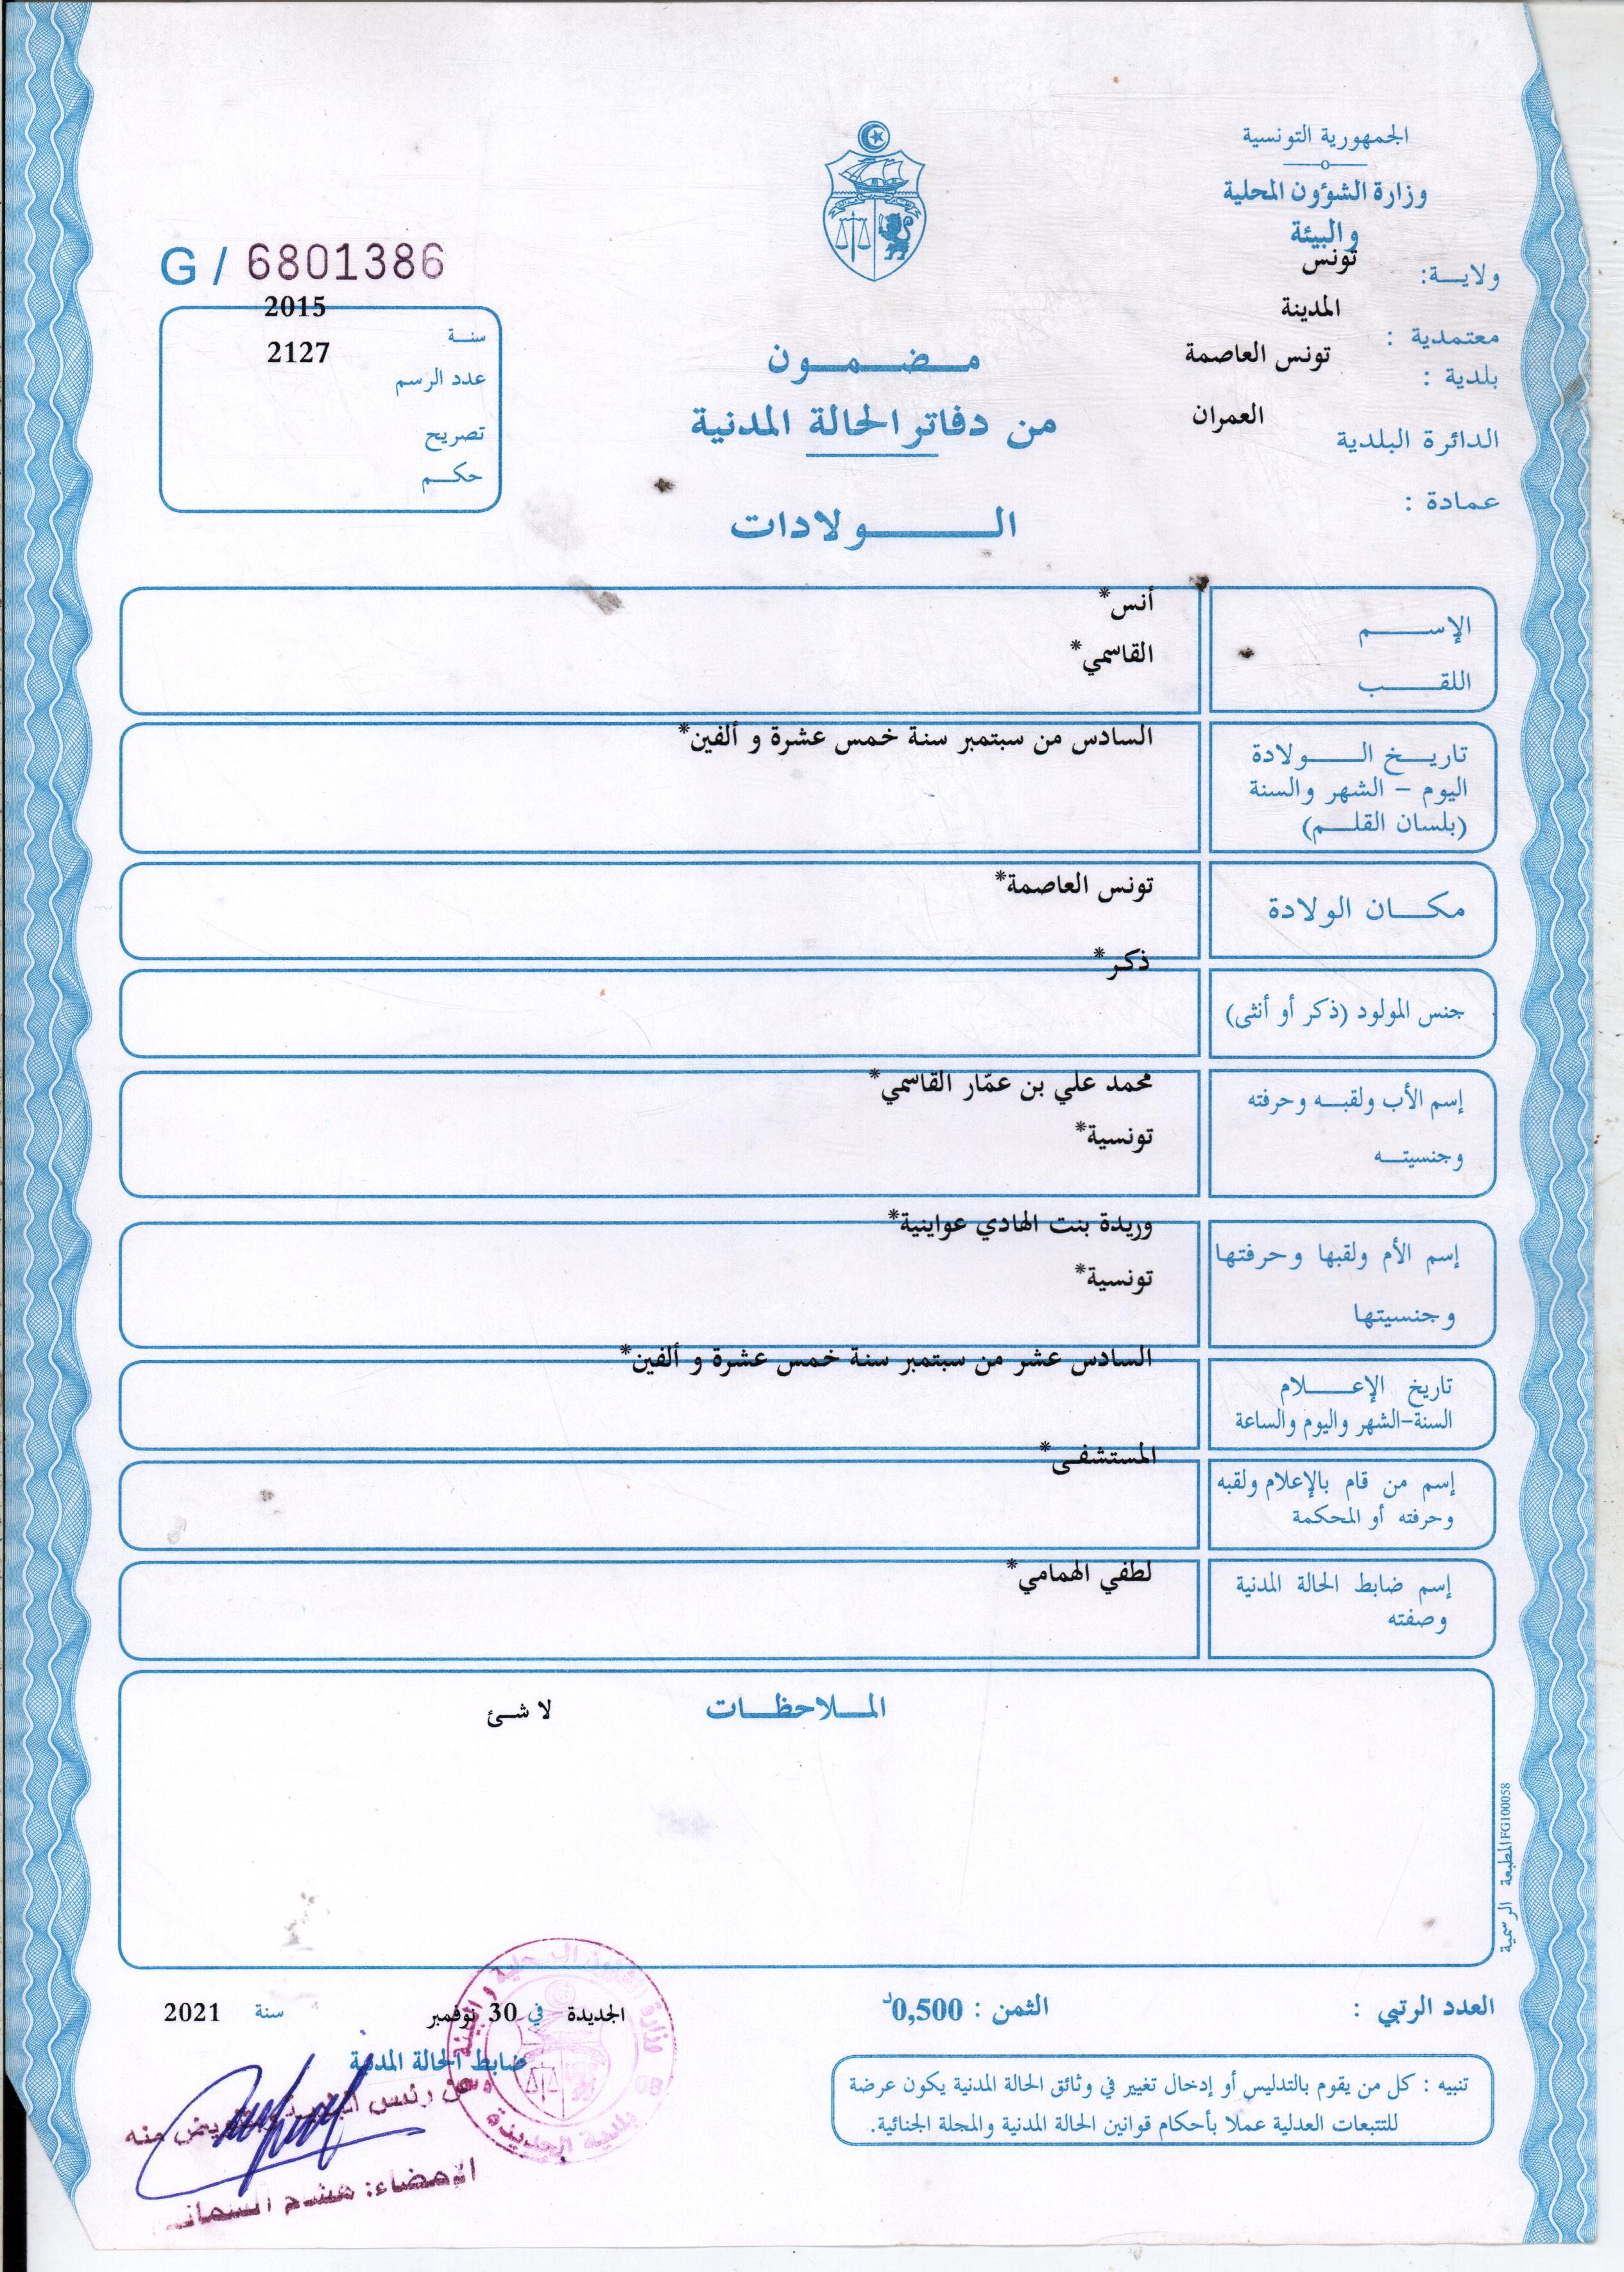 الجمهورية التونسية
وزارة الشؤون المحلية
والبيئة
ولاية: تونس
معتمدية : المدينة
بلدية : تونس العاصمة
الدائرة البلدية العمران
عمادة :
G / 6801386
سنة 2015
عدد الرسم 2127
تصريح
حكم
مضمون
من دفاتر الحالة المدنية
الولادات
الإسم أنس*
اللقب القاسمي*
تاريخ الولادة السادس من سبتمبر سنة خمس عشرة و ألفين*
اليوم – الشهر والسنة
(بلسان القلم)
مكان الولادة تونس العاصمة*
جنس المولود (ذكر أو أنثى) ذكر*
إسم الأب ولقبه وحرفته محمد علي بن عمّار القاسمي*
وجنسيته تونسية*
إسم الأم ولقبها وحرفتها وريدة بنت الهادي عواينية*
وجنسيتها تونسية*
تاريخ الإعلام السادس عشر من سبتمبر سنة خمس عشرة و ألفين*
السنة-الشهر واليوم والساعة
إسم من قام بالإعلام ولقبه المستشفى*
وحرفته أو المحكمة
إسم ضابط الحالة المدنية لطفي الهمامي*
وصفته
الملاحظات لا شئ
المطبعة الرسمية FG100058
العدد الرتبي : الثمن : 0,500د
الجديدة في 30 نوفمبر سنة 2021
ضابط الحالة المدنية
تنبيه : كل من يقوم بالتدليس أو إدخال تغيير في وثائق الحالة المدنية يكون عرضة
للتتبعات العدلية عملا بأحكام قوانين الحالة المدنية والمجلة الجنائية.
وزارة الشؤون المحلية والبيئة
بلدية الجديدة
08
عن رئيس البلدية وبتفويض منه
الإمضاء: هشام